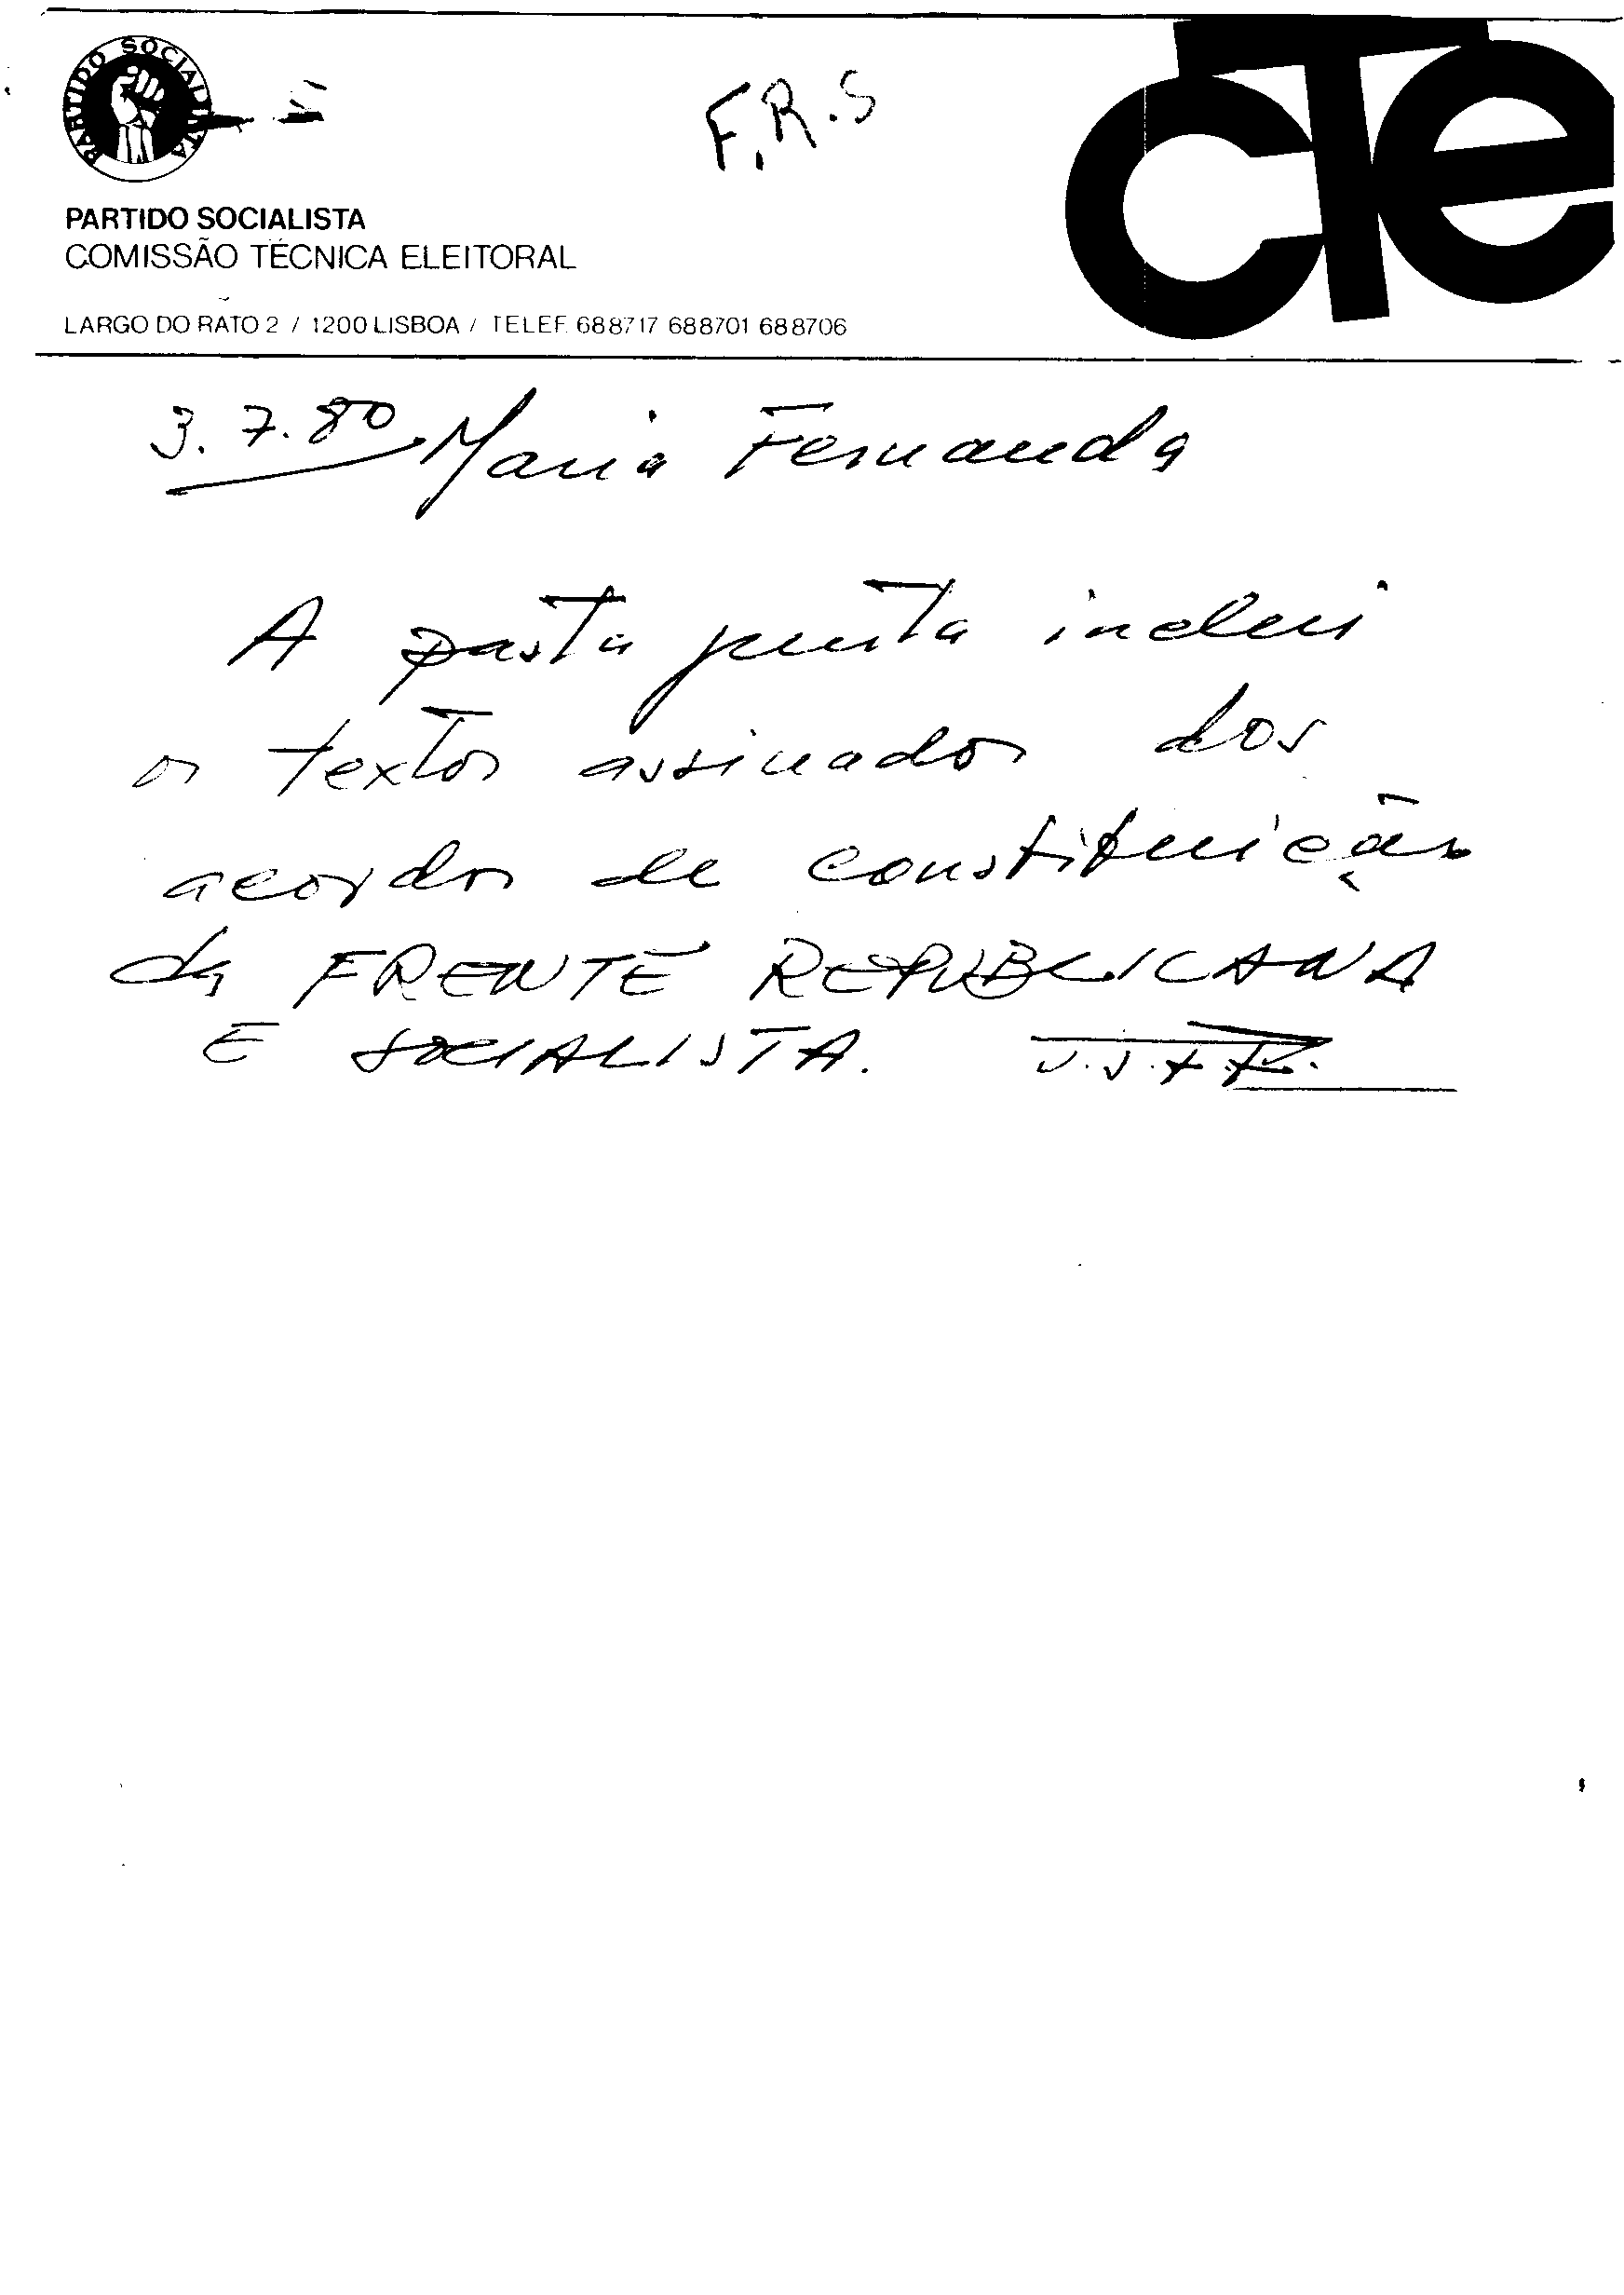 PARTIDO SOCIALISTA
F.R.S
cTe
PARTIDO SOCIALISTA
COMISSÃO TÉCNICA ELEITORAL
LARGO DO RATO 2 / 1200 LISBOA / TELEF. 688717 688701 688706
3.7.80 Maria Fernanda
A pasta junta inclui
os textos assinados dos
acordos de constituição
da FRENTE REPUBLICANA
E SOCIALISTA.